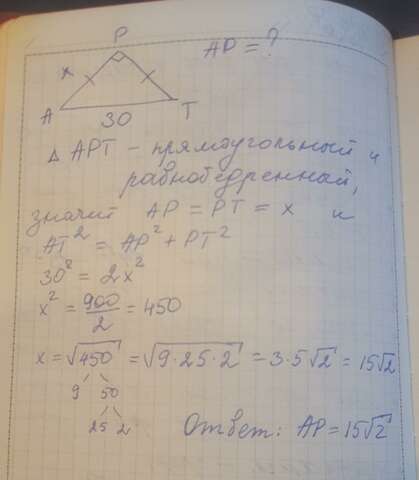 P
AP = ?
x
A
T
30
Δ APT – прямоугольный и
равнобедренный,
значит AP = PT = x и
AT² = AP² + PT²
30² = 2x²
x² = 900/2 = 450
x = √450 = √9·25·2 = 3·5√2 = 15√2
9 50
25 2
Ответ: AP = 15√2